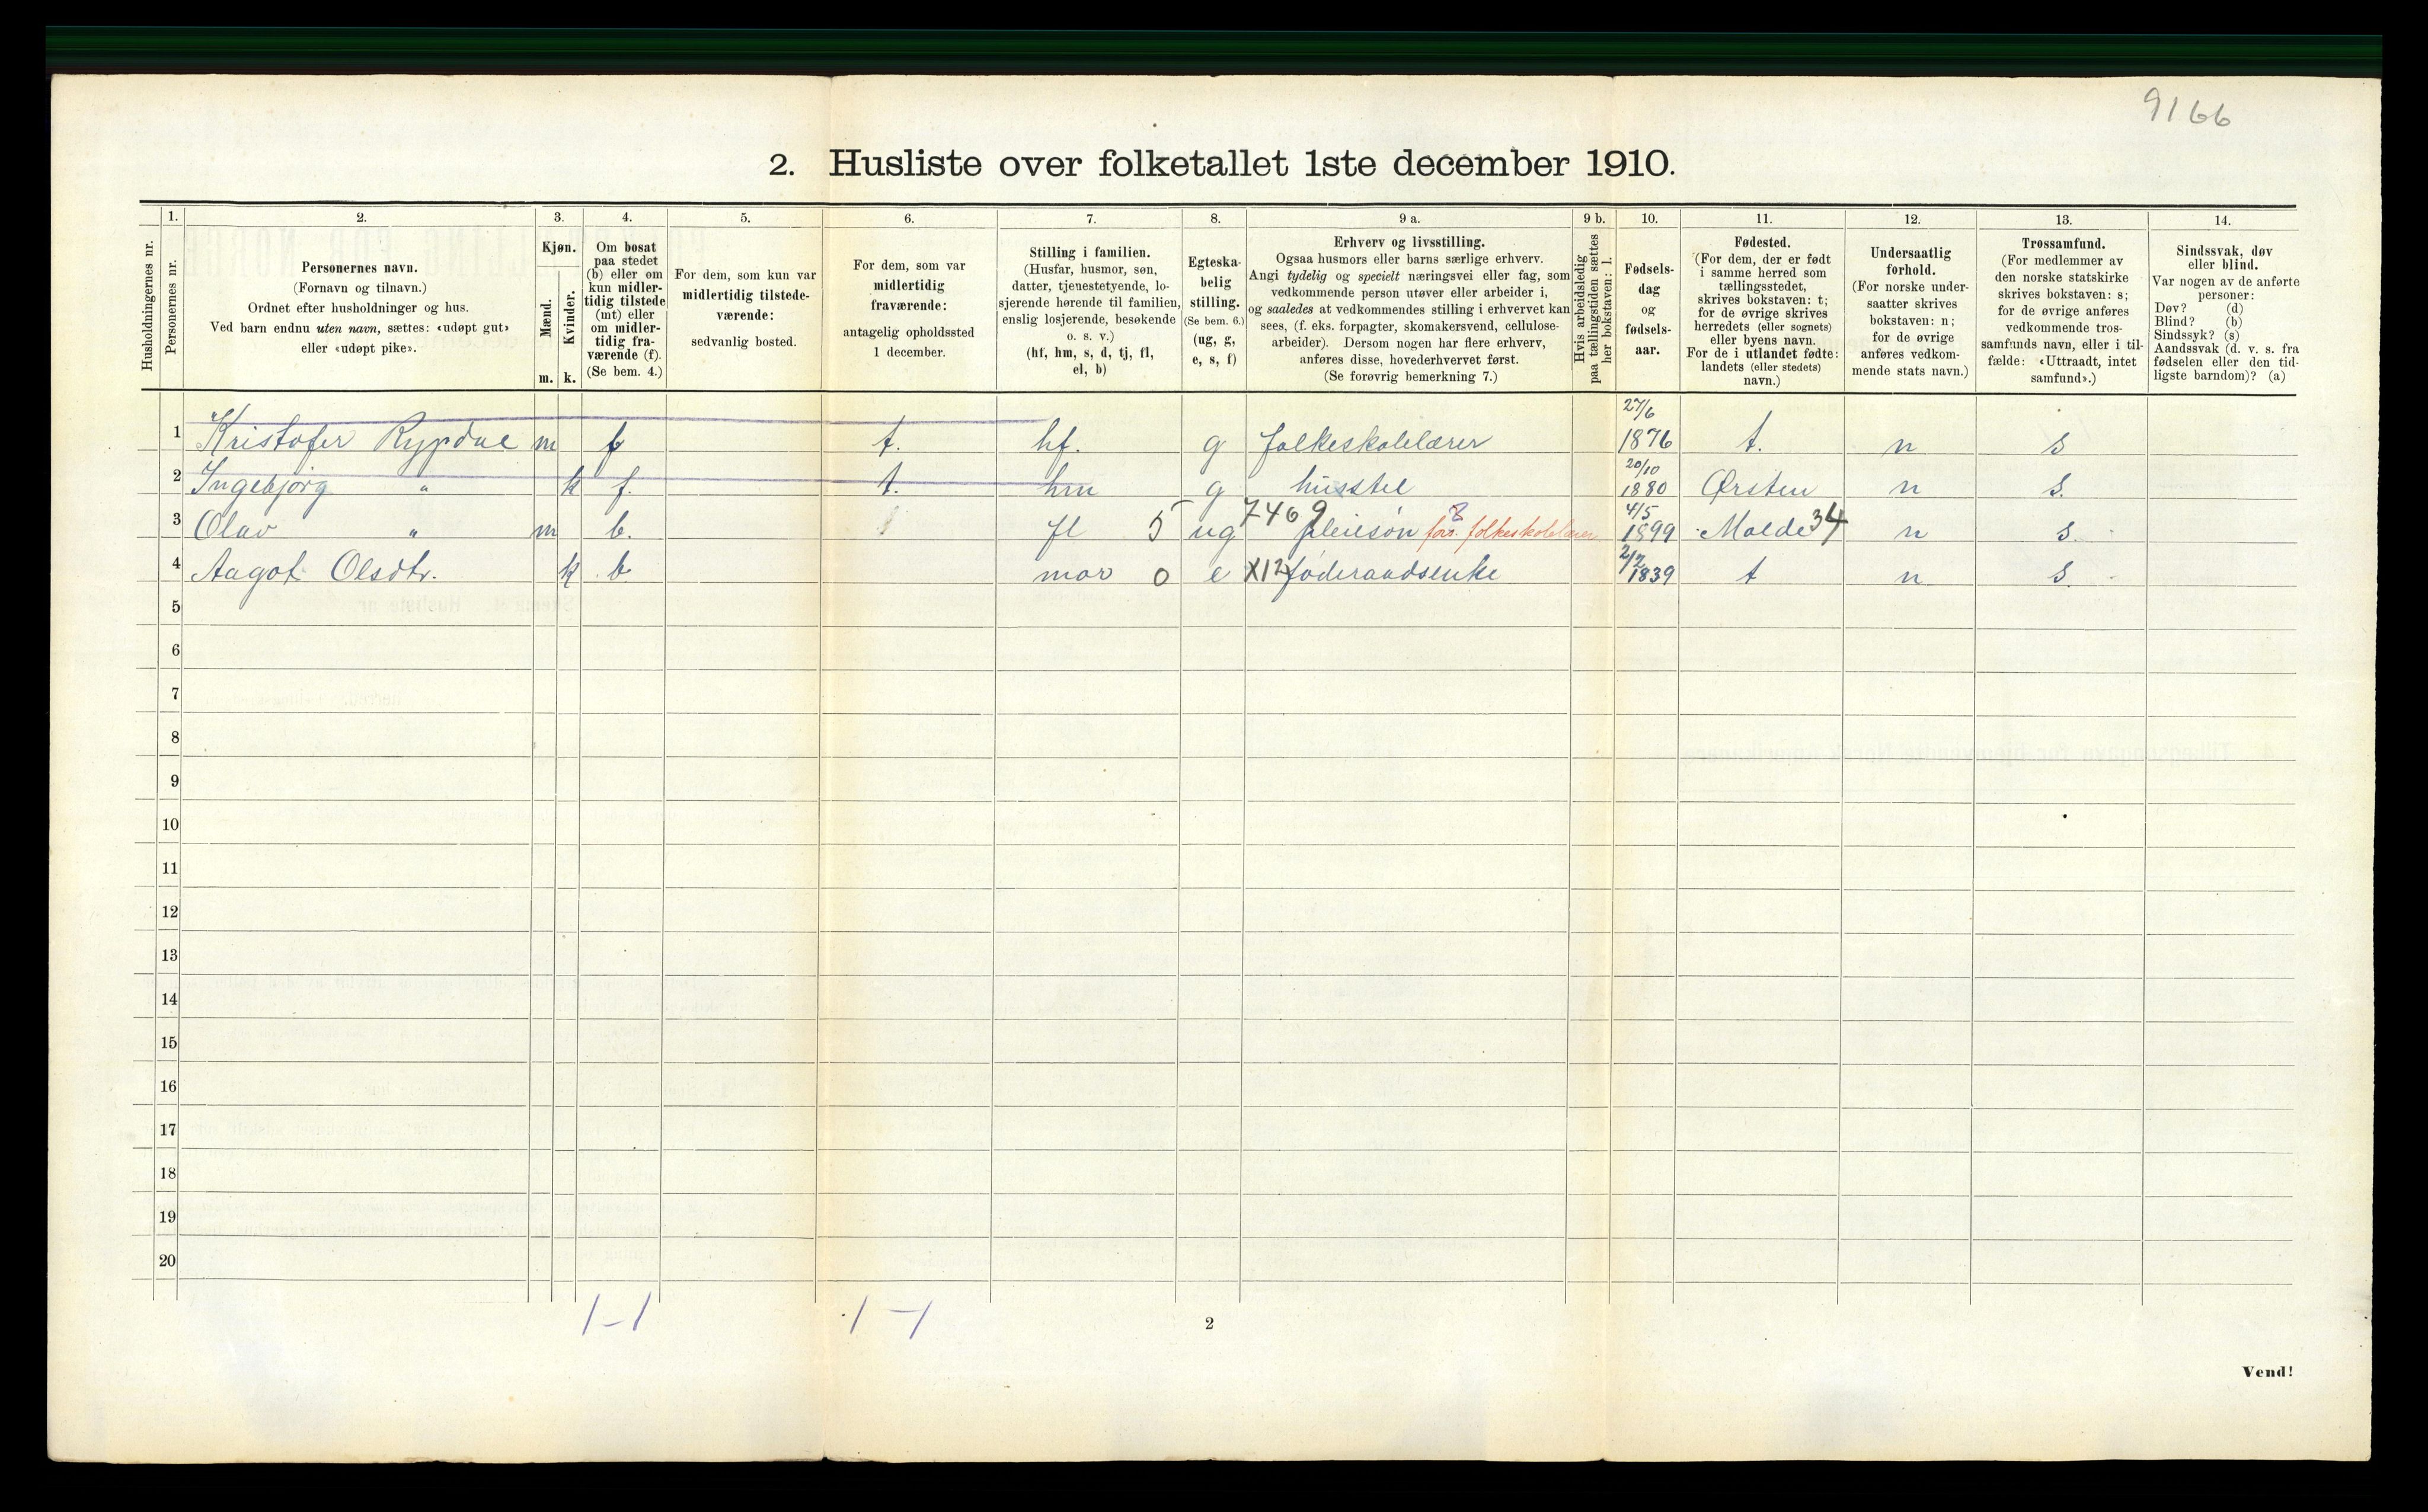 9166
2. Husliste over folketallet 1ste december 1910.
Husholdningernes nr.
1.
Personernes nr.
2.
Personernes navn.
(Fornavn og tilnavn.)
Ordnet efter husholdninger og hus.
Ved barn endnu uten navn, sættes: «udøpt gut»
eller «udøpt pike».
3.
Kjøn.
Mænd.
m.
Kvinder.
k.
4.
Om bosat
paa stedet
(b) eller om
kun midler-
tidig tilstede
(mt) eller
om midler-
tidig fra-
værende (f).
(Se bem. 4.)
5.
For dem, som kun var
midlertidig tilstede-
værende:
sedvanlig bosted.
6.
For dem, som var
midlertidig
fraværende:
antagelig opholdssted
1 december.
7.
Stilling i familien.
(Husfar, husmor, søn,
datter, tjenestetyende, lo-
sjerende hørende til familien,
enslig losjerende, besøkende
o. s. v.)
(hf, hm, s, d, tj, fl,
el, b)
8.
Egteska-
belig
stilling.
(Se bem. 6.)
(ug, g,
e, s, f)
9 a.
Erhverv og livsstilling.
Ogsaa husmors eller barns særlige erhverv.
Angi tydelig og specielt næringsvei eller fag, som
vedkommende person utøver eller arbeider i,
og saaledes at vedkommendes stilling i erhvervet kan
sees, (f. eks. forpagter, skomakersvend, cellulose-
arbeider). Dersom nogen har flere erhverv,
anføres disse, hovederhvervet først.
(Se forøvrig bemerkning 7.)
9 b.
Hvis arbeidsledig
paa tællingstiden sættes
her bokstaven: l.
10.
Fødsels-
dag
og
fødsels-
aar.
11.
Fødested.
(For dem, der er født
i samme herred som
tællingsstedet,
skrives bokstaven: t;
for de øvrige skrives
herredets (eller sognets)
eller byens navn.
For de i utlandet fødte:
landets (eller stedets)
navn.)
12.
Undersaatlig
forhold.
(For norske under-
saatter skrives
bokstaven: n;
for de øvrige
anføres vedkom-
mende stats navn.)
13.
Trossamfund.
(For medlemmer av
den norske statskirke
skrives bokstaven: s;
for de øvrige anføres
vedkommende tros-
samfunds navn, eller i til-
fælde: «Uttraadt, intet
samfund».)
14.
Sindssvak, døv
eller blind.
Var nogen av de anførte
personer:
Døv? (d)
Blind? (b)
Sindssyk? (s)
Aandssvak (d. v. s. fra
fødselen eller den tid-
ligste barndom)? (a)
1 Kristofer Rypdal m f t. hf. g folkeskolelærer 27/6 1876 t. n s
2 Ingebjørg " k f. t. hm g husstel 20/10 1880 Ørsten n s.
3 Olav " m b. fl 5 ug 7469 pleiesøn 8 fors. folkeskolelærer 4/5 1899 Molde 34 n s.
4 Aagot Olsdtr. k b mor 0 e X12 føderaadsenke 2/2 1839 t n s.
5
6
7
8
9
10
11
12
13
14
15
16
17
18
19
20
1-1 1-1
2
Vend!